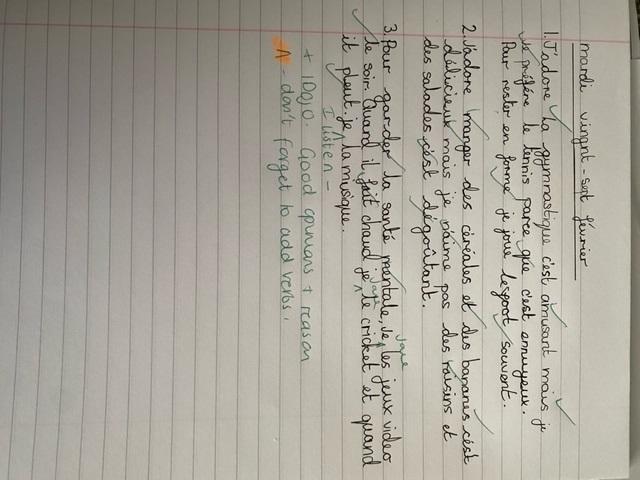 mardi vingnt-sept février
1. J'adore la gymnastique c'est amusant mais je
je préfère le tennis parce que c'est ennuyeux.
Pour rester en forme je joue lesport souvent.
2. J'adore manger des céréales et des bananes c'est
délicieux mais je n'aime pas des raisins et
des salades c'est dégoûtant.
joue
3. Pour garder la santé mentale, Je les jeux video
le soir. Quand il fait chaud je joue le cricket et quand
it pleut je la musique.
I listen -
+ 1Dojo. Good opinions + reason
^ - don't forget to add verbs!